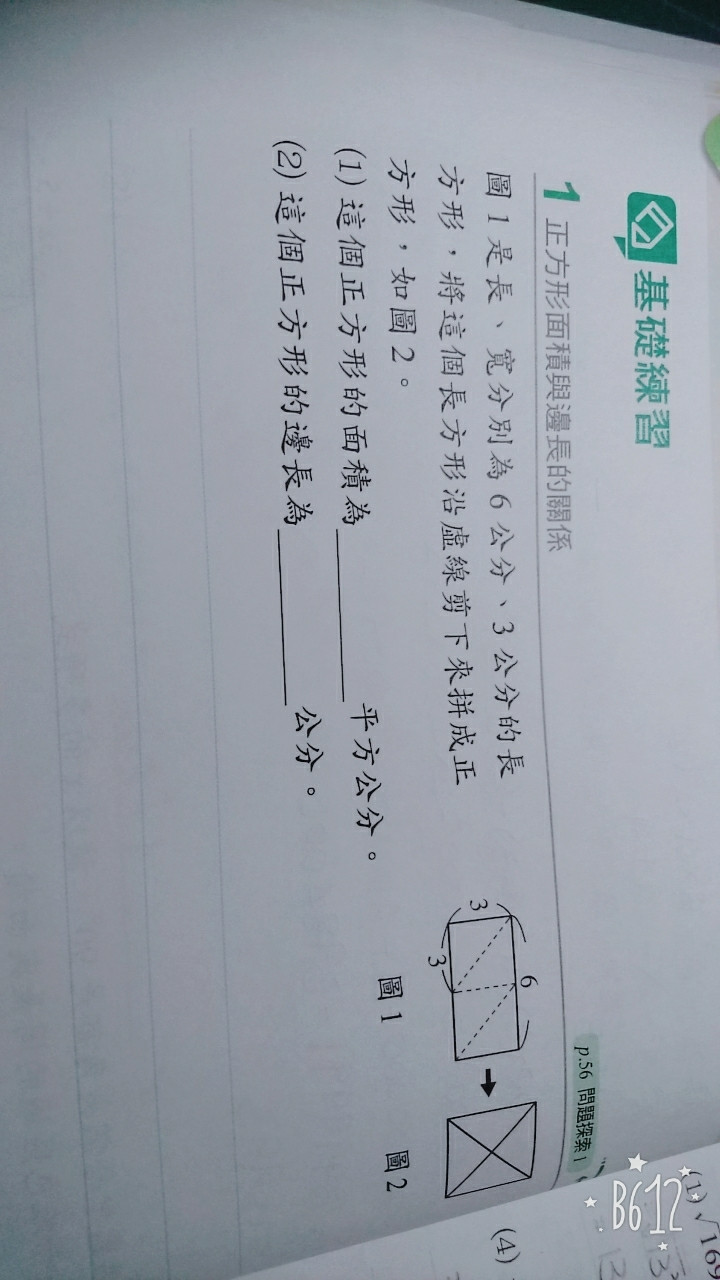 基礎練習
p.56 問題探索1
1 正方形面積與邊長的關係
圖1是長、寬分別為6公分、3公分的長
方形,將這個長方形沿虛線剪下來拼成正
方形,如圖2。
(1) 這個正方形的面積為______平方公分。
(2) 這個正方形的邊長為______公分。
6
3
3
圖1
圖2
(1) √169
(4)
B612